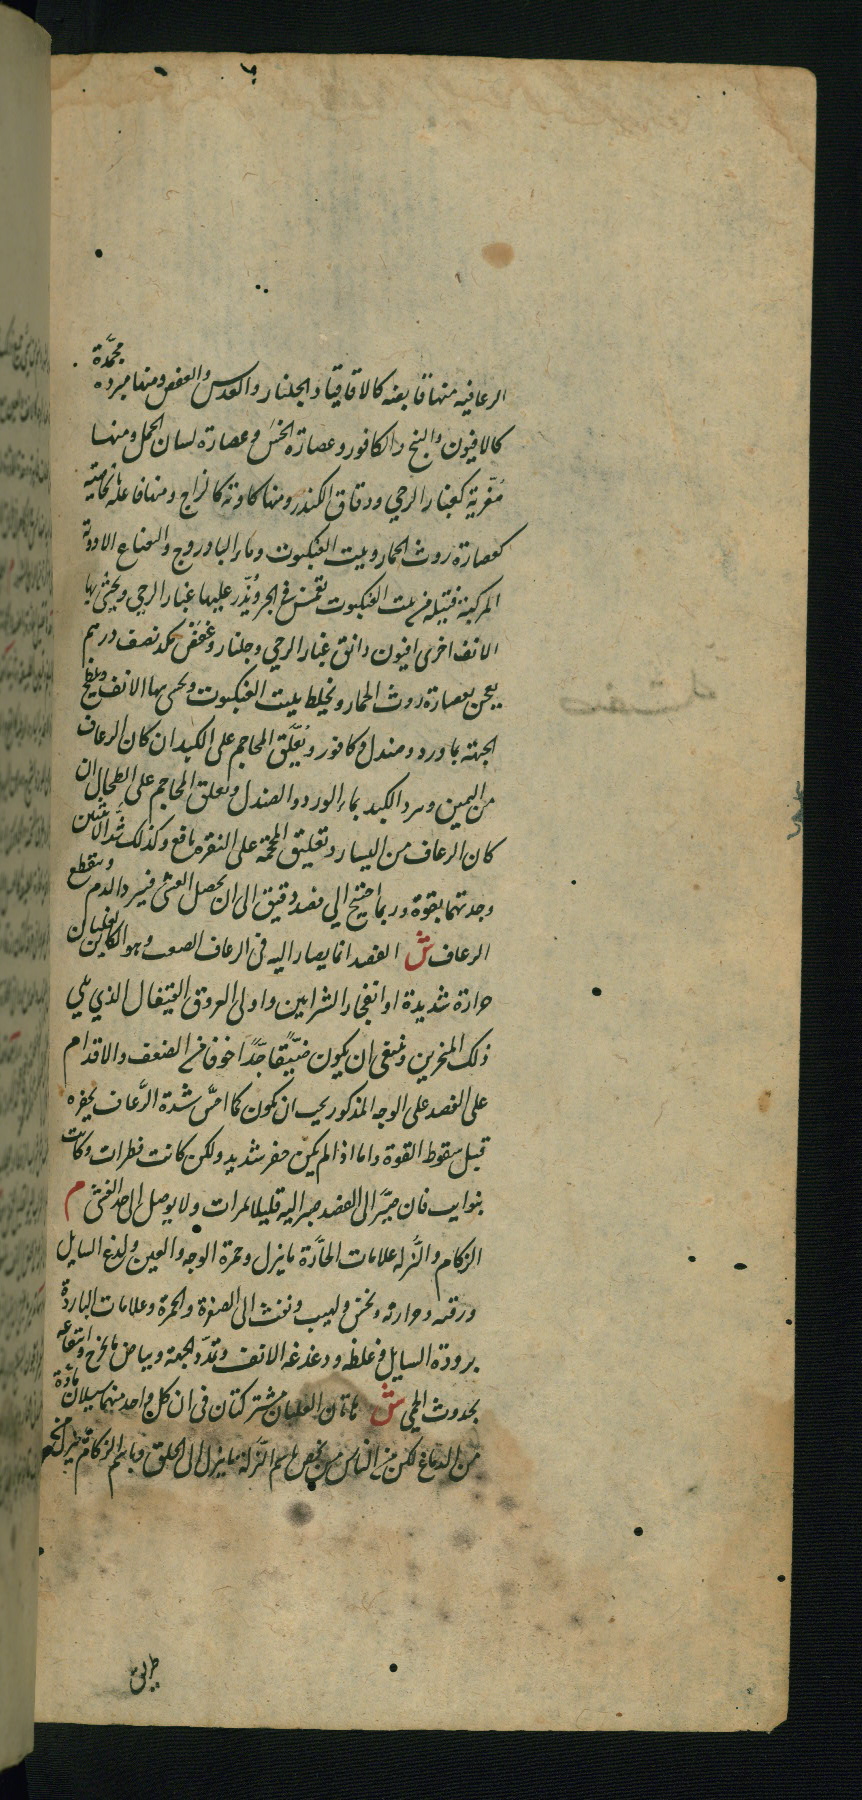 الرعافيه منها قابضه كالاقاقيا والجلنار والعدس والعفص ومنها مبرده مجمّدة
كالافيون والبنج والكافور وعصارة الخسّ وعصارة لسان الحمل ومنها
مُغرّية كغبار الرحي ودقاق الكندر ومنها كاوية كالزاج ومنها فاعلة بخاصّية
كعصارة روث الحمار وبيت العنكبوت وماء الباوروج والنعناع الادوية
المركبة فتيله من بيت العنكبوت تغمس في الحبر ويُذّر عليها غبار الرحي ويحشي بها
الانف اخرى افيون دانق غبار الرحي وجلنار وعفص مكد نصف درهم
يعجن بعصارة روث الحمار ويخلط ببيت العنكبوت ويحشى بها الانف ويلطخ
الجبهة بماورد وصندل وكافور ويُعلّق المحاجم على الكبد ان كان الرعاف
من اليمين ويبرد الكبد بماء الورد والصندل وتعلق المحاجم على الطحال ان
كان الرعاف من اليسار وتعليق المحجمة على النقرة نافع وكذلك شدّ الانثيين
وجذبتهما بقوة وربما احتيج الي فصد دقيق الى ان يحصل الغشي فيبرد الدم وينقطع
الرعاف ش الفصد انما يصار اليه في الرعاف الصعب وهو الكاين لغليان
حرارة شديدة او انفجار الشرايين واولى العروق القيفال الذي يلي
ذلك المنخرين وينبغي ان يكون ضيّقًا جدًّا خوفًا من الضعف والاقدام
على الفصد على الوجه المذكور يجب ان يكون كما امسّ شدة الرّعاف بحفزه
قبل سقوط القوة واما اذا لم يكن حفر شديد ولكن كانت قطرات وكانت
بنوايب فان صيّر الى الفصد صير اليه قليلا لمرات ولا يوصل الى حد الغشي م
الزكام والنَّزله علامات الحارّة ما ينزل وحمرة الوجه والعين ولدغ السايل
ورقته وحرارته ونخس ولهيب ونفث الى الصفرة والحمرة وعلامات الباردة
برودة السايل وغلظه ودغدغه الانف وتمدّد الجبهة وبياض ما يخرج وانتفاعه
بحدوث الحمي ش هاتان العلتان مشتركتان في ان كل واحد منهما سيلان مادّة
من الدماغ لكن من الناس من يخصّ باسم النَّزله ما ينزل الى الحلق وباسم الزكام ما ينزل من
طريق